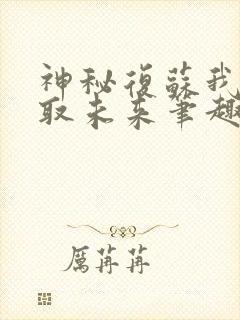 神秘復蘇我
取未来筆趣
厲苒苒